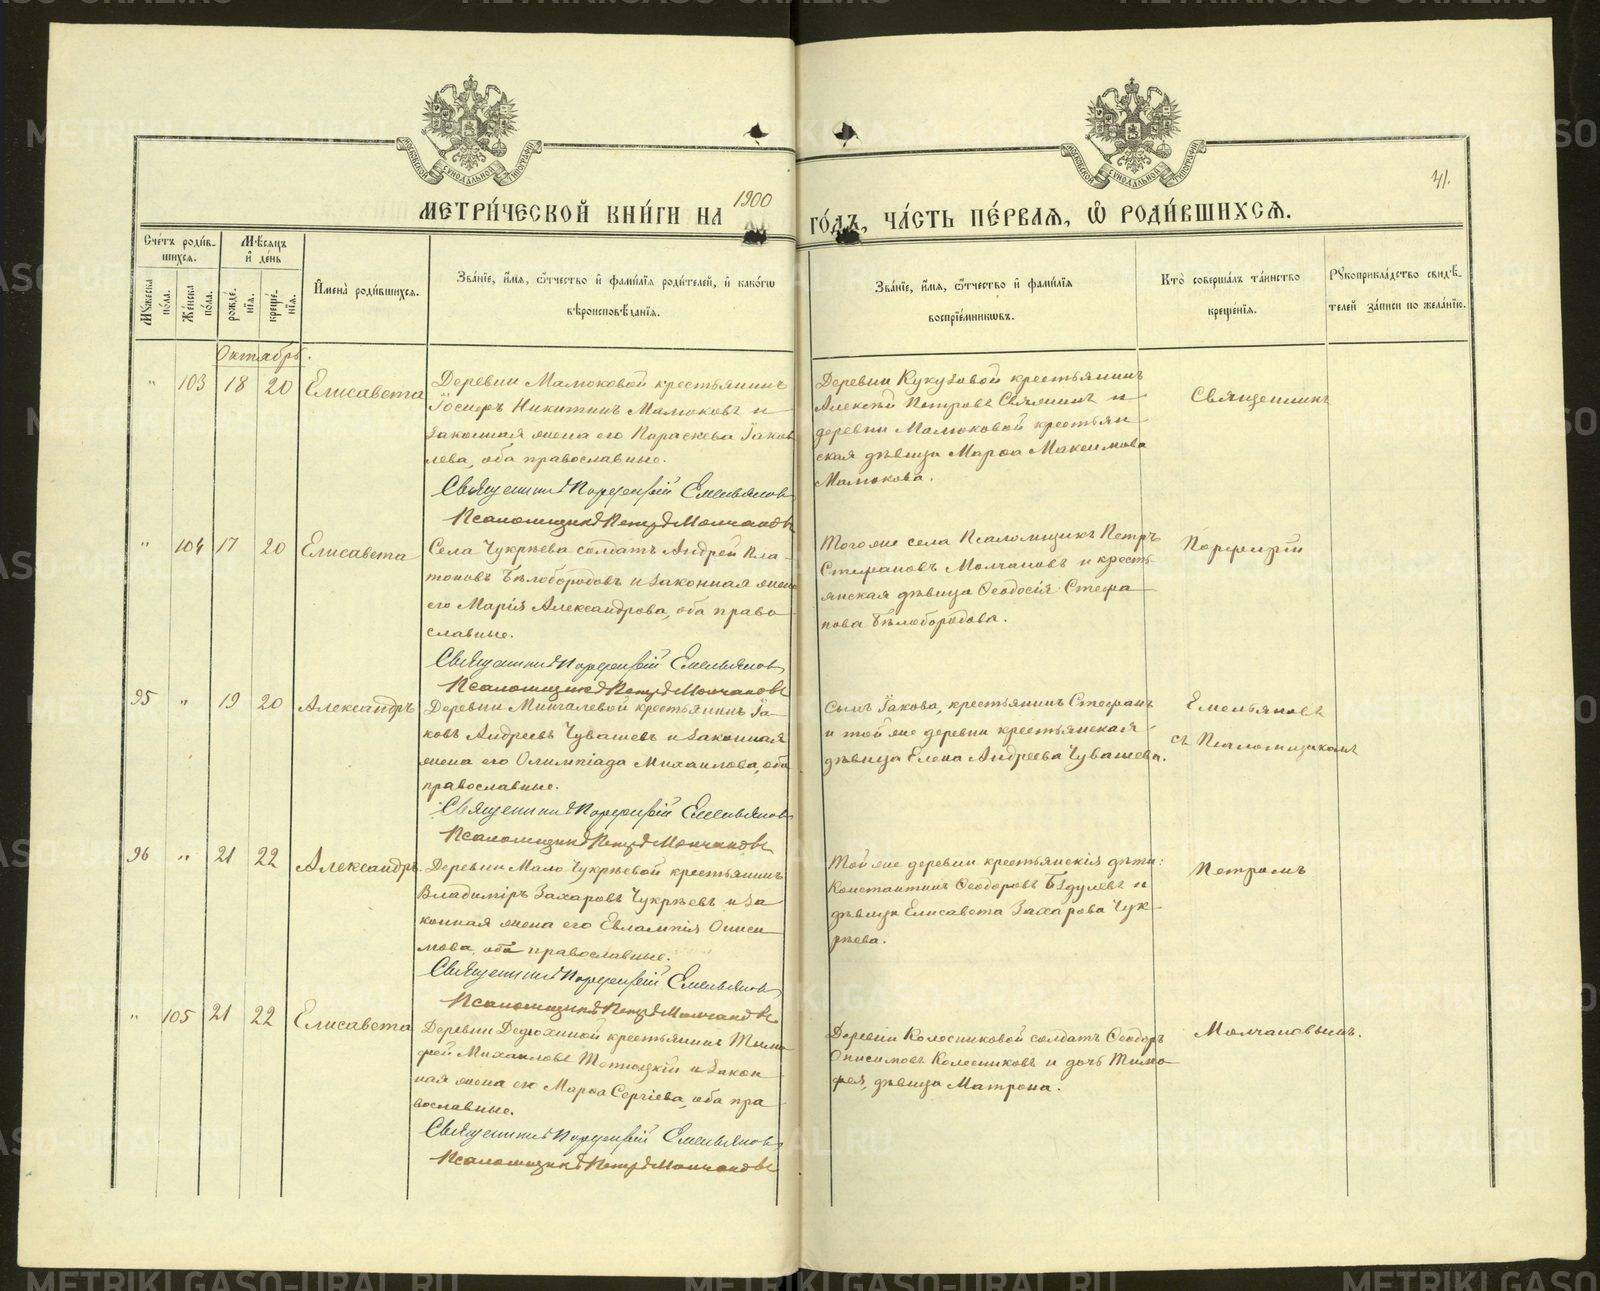 МЕТРИ́ЧЕСКОЙ КНИ́ГИ НА 1900
ГО́ДЪ, ЧА́СТЬ ПЕ́РВАЯ, Ѽ РОДИ́ВШИХСЯ.
41.
Сче́тъ роди́в-
шихся.
Мѣ́сяцъ
и҆ де́нь
Мꙋжеска
по́ла.
Женска
по́ла.
рожде́-
нїѧ.
креще́-
нїѧ.
И҆мена̀ роди́вшихся.
Зва́нїе, и҆́мѧ, ѻ҆́тчество и҆ фамі́лїѧ роди́телей, и҆ како́гѡ
вѣроисповѣ́данїѧ.
Зва́нїе, и҆́мѧ, ѻ҆́тчество и҆ фамі́лїѧ
воспрїе́мникѡвъ.
Кто̀ соверша́лъ та́инство
креще́нїѧ.
Рꙋкоприкла́дство свидѣ́-
телей за́писи по жела́нїю.
Октябрь.
" 103 18 20 Елисавета
Деревни Малюковой крестьянинъ
Іосифъ Никитинъ Малюковъ и
законная жена его Параскева Іаков
лева, оба православные.
Священникъ Порфирій Емельяновъ
Псаломщикъ Петръ Молчановъ
Деревни Кукузовой крестьянинъ
Алексѣй Петровъ и
деревни Малюковой крестьян-
ская дѣвица Марѳа Максимова
Малюкова.
Священникъ
" 104 17 20 Елисавета
Села Чукрѣева солдатъ Андрей Пла-
тоновъ Бѣлобородовъ и законная жена
его Марія Александрова, оба право-
славные.
Священникъ Порфирій Емельяновъ
Псаломщикъ Петръ Молчановъ
Того же села Псаломщикъ Петръ
Стефановъ Молчановъ и кресть-
янская дѣвица Ѳеодосія Стефа-
нова Бѣлобородова.
Порфирій
95 " 19 20 Александръ
Деревни Мингалевой крестьянинъ Іа-
ковъ Андреевъ Чувашевъ и законная
жена его Олимпіада Михаилова, оба
православные.
Священникъ Порфирій Емельяновъ
Псаломщикъ Петръ Молчановъ
Сынъ Іакова, крестьянинъ Стефанъ
и той же деревни крестьянская
дѣвица Елена Андреева Чувашева.
Емельяновъ
съ Псаломщикомъ
96 " 21 22 Александръ
Деревни Мало Чукрѣевой крестьянинъ
Владимiръ Захаровъ Чукрѣевъ и за
конная жена его ЕвлампіяОниси
мова, оба православные.
Священникъ Порфирій Емельяновъ
Псаломщикъ Петръ Молчановъ
Той же деревни крестьянскія дѣти:
Константинъ Ѳеодоровъ и
дѣвица Елисавета Захарова Чук-
рѣева.
Петромъ
" 105 21 22 Елисавета
Деревни Дедюхиной крестьянинъ Тимо
фей Михаиловъ и закон
ная жена его Марѳа Сергіева, оба пра
вославные.
Священникъ Порфирій Емельяновъ
Псаломщикъ Петръ Молчановъ
Деревни Колесниковой солдатъ Ѳеодоръ
Онисимовъ Колесниковъ и дочь Тимо-
фея, дѣвица Матрона.
Молчановымъ.
METRIKI.GASO-URAL.RU